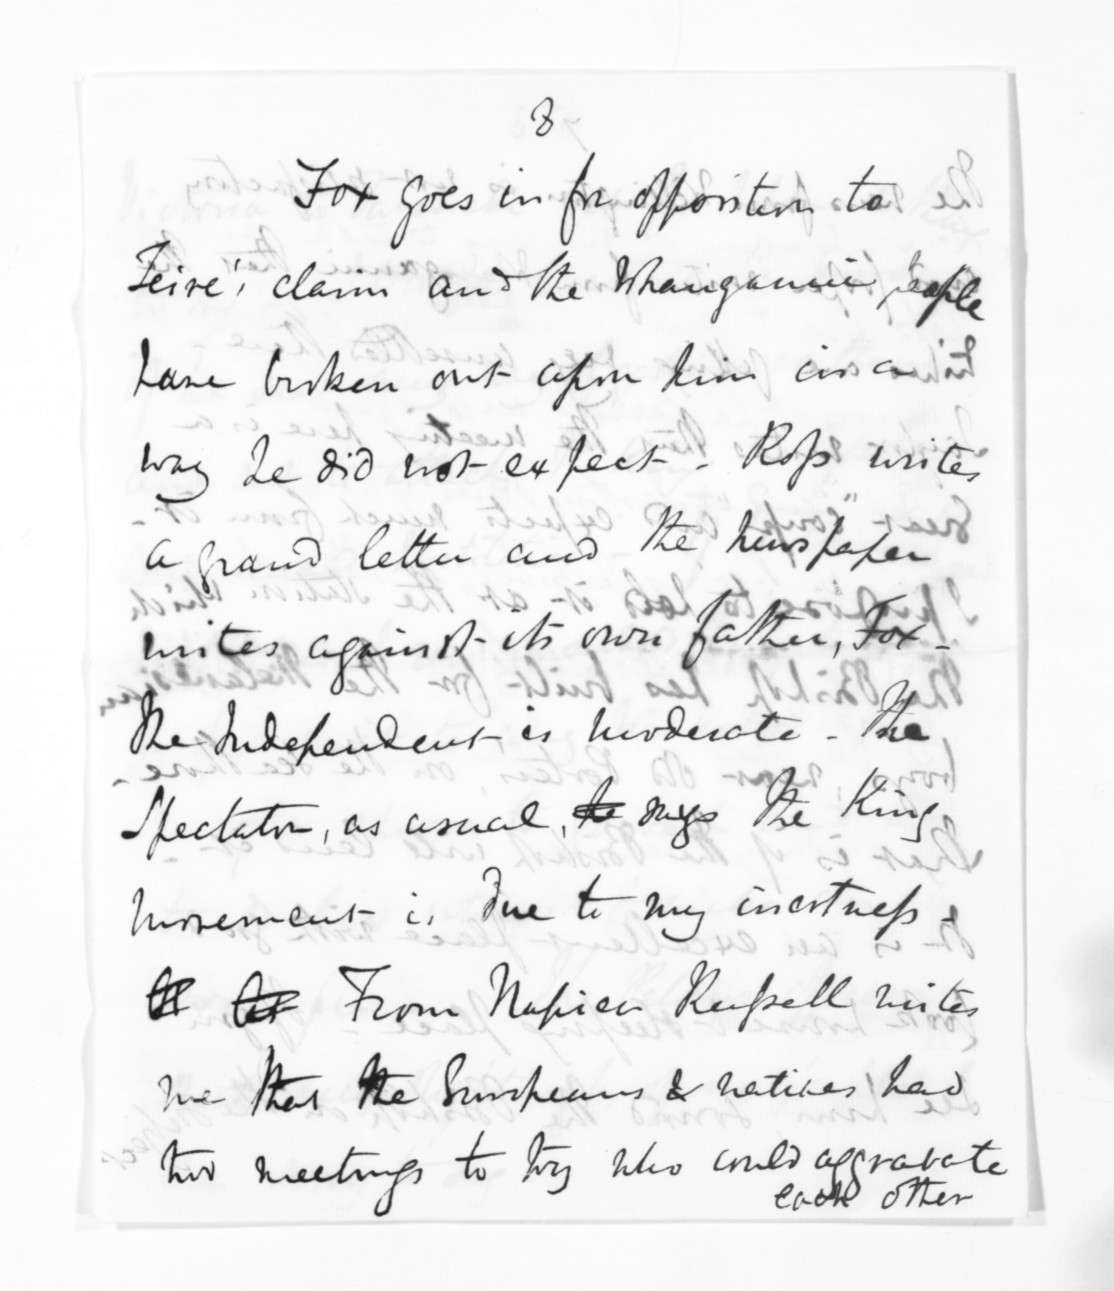 8
Fox goes in for opposition to
Teira's claim and the Whanganui people
have broken out upon him in a
way he did not expect - Ross writes
a grand letter and the newspaper
writes against its own father, Fox -
The Independent is moderate - The
Spectator, as usual, says the King
movement is due to my inertness -
From Napier Russell writes
me that the Europeans & natives had
two meetings to try who could aggravate
each other